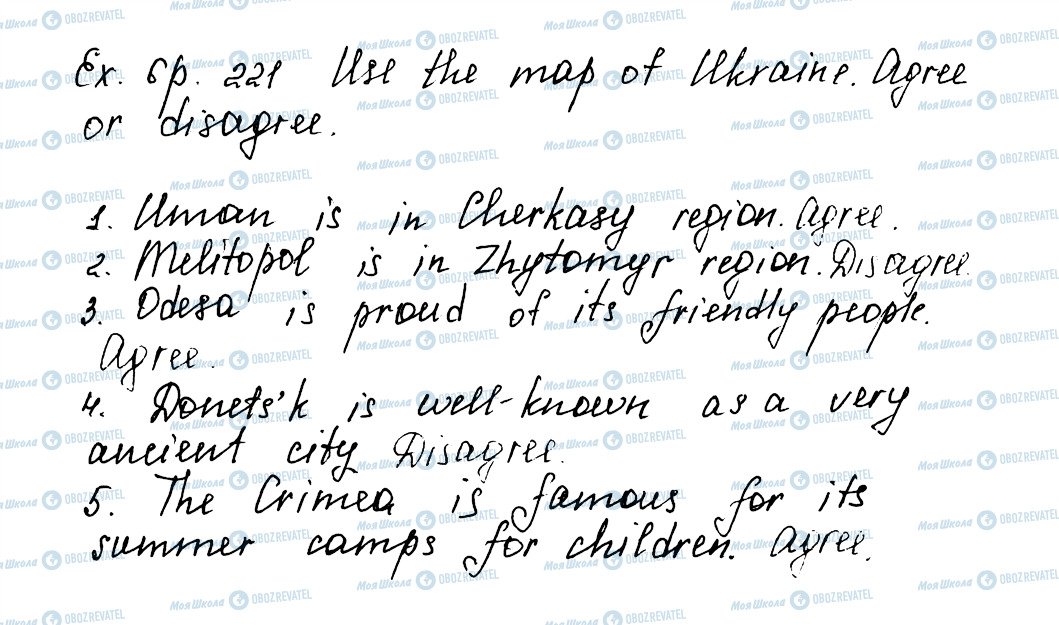 Ex. 6 p. 221 Use the map of Ukraine. Agree
or disagree.
1. Uman is in Cherkasy region. Agree.
2. Melitopol is in Zhytomyr region. Disagree.
3. Odesa is proud of its friendly people.
Agree.
4. Donets'k is well-known as a very
ancient city. Disagree.
5. The Crimea is famous for its
summer camps for children. Agree.